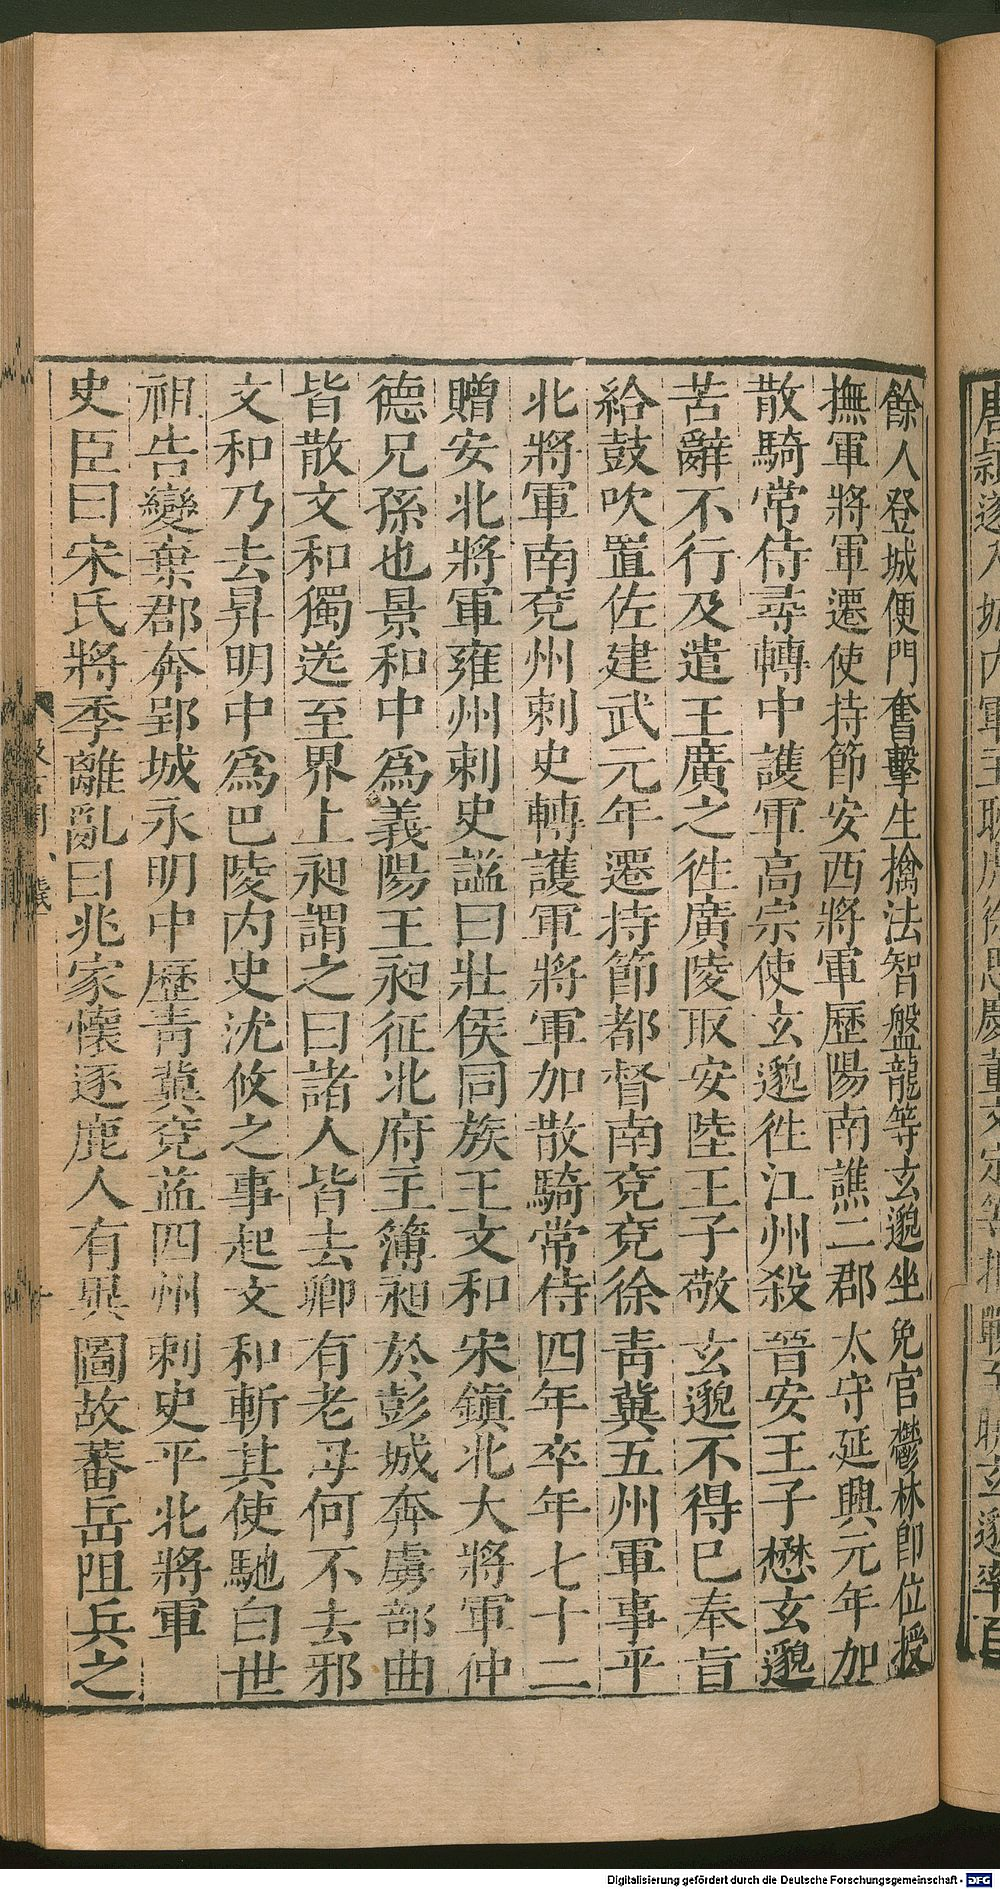 餘人登城便門奮擊生擒法智盤龍等玄邈坐免官鬱林卽位授
撫軍將軍遷使持節安西將軍歷陽南譙二郡太守延興元年加
散騎常侍尋轉中護軍高宗使玄邈徃江州殺晉安王子懋玄邈
苦辭不行及遣王廣之徃廣陵取安陸王子敬玄邈不得已奉旨
給鼓吹置佐建武元年遷持節都督南兗兗徐青冀五州軍事平
北將軍南兗州刺史轉護軍將軍加散騎常侍四年卒年七十二
贈安北將軍雍州刺史諡曰壯侯同族王文和宋鎮北大將軍仲
德兄孫也景和中爲義陽王昶征北府主簿昶於彭城奔虜部曲
皆散文和獨送至界上昶謂之曰諸人皆去卿有老母何不去邪
文和乃去昇明中爲巴陵内史沈攸之事起文和斬其使馳白世
祖告變棄郡奔郢城永明中歷青冀兗益四州刺史平北將軍
史臣曰宋氏將季離亂日兆家懷逐鹿人有異圖故蕃岳阻兵之
Digitalisierung gefördert durch die Deutsche Forschungsgemeinschaft - DFG